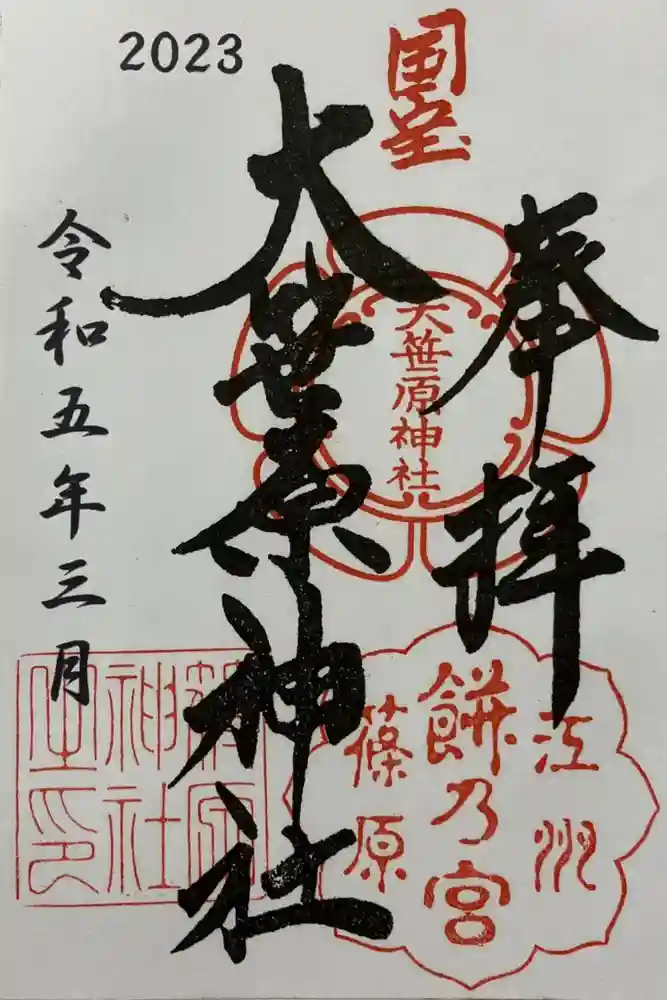 2023
国宝
奉拝
大笹原神社
大笹原神社
令和五年三月
江州
餅乃宮
篠原
神社